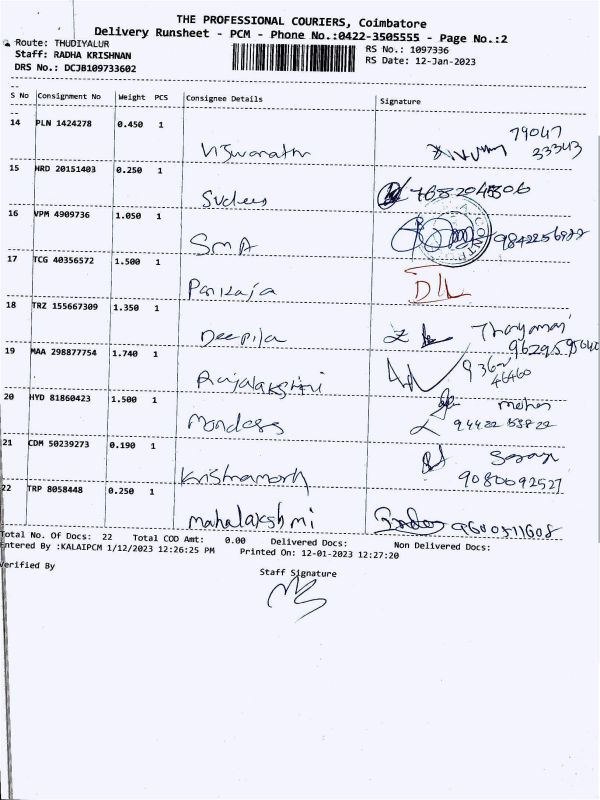 THE PROFESSIONAL COURIERS, Coimbatore
Delivery Runsheet - PCM - Phone No.:0422-3505555 - Page No.:2
Route: THUDIYALUR
RS No.: 1097336
Staff: RADHA KRISHNAN
RS Date: 12-Jan-2023
DRS No.: DCJB109733602
S No Consignment No Weight PCS Consignee Details Signature
14 PLN 1424278 0.450 1 Viswanath 79047
33343
15 HRD 20151403 0.250 1 Sudees
16 VPM 4909736 1.050 1 SMA
17 TCG 40356572 1.500 1 D/L
18 TRZ 155667309 1.350 1 Deepika
19 MAA 298877754 1.740 1 Rajalakshmi
46460
20 HYD 81860423 1.500 1
21 CDM 50239273 0.190 1
9080092527
22 TRP 8058448 0.250 1 mahalakshmi 9600511608
Total No. Of Docs: 22 Total COD Amt: 0.00 Delivered Docs: Non Delivered Docs:
Entered By :KALAIPCM 1/12/2023 12:26:25 PM Printed On: 12-01-2023 12:27:20
Verified By
Staff Signature